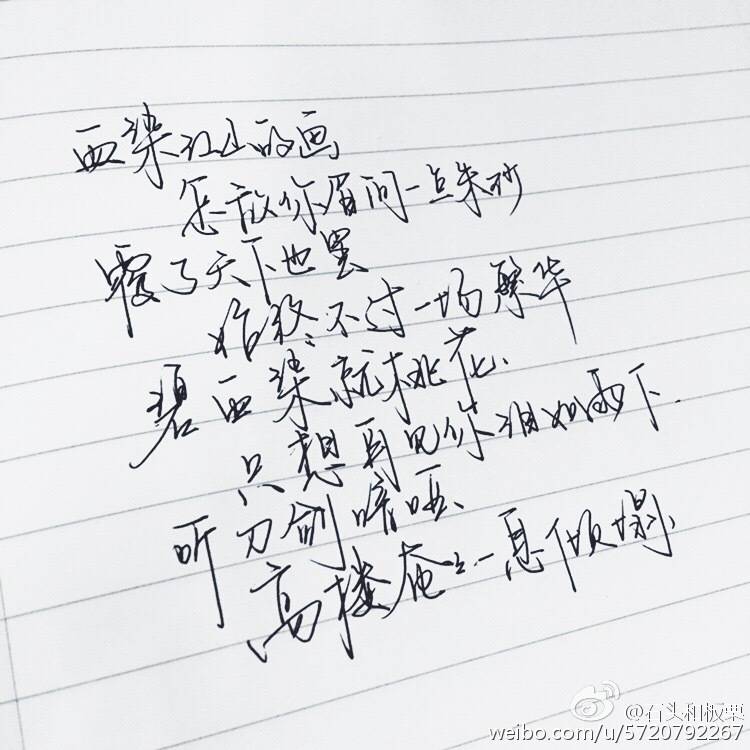 血染江山的画
怎敌你眉间一点朱砂
覆了天下也罢
始终不过一场繁华
碧血染就桃花
只想再见你泪如雨下
听刀剑喑哑
高楼奄奄一息倾塌
@石头和板栗
weibo.com/u/5720792267